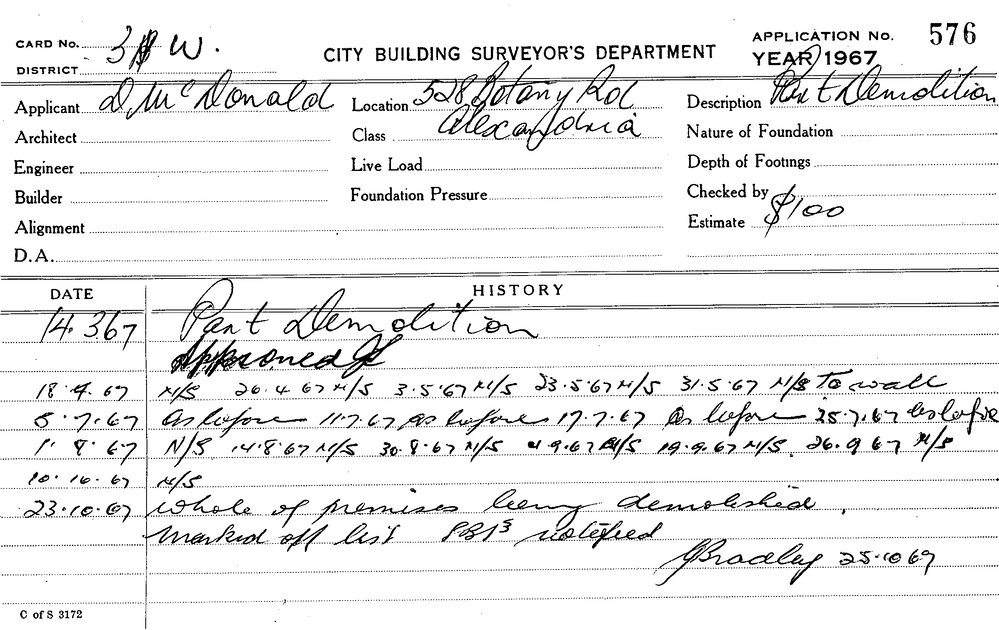 CARD No. 3 W.
CITY BUILDING SURVEYOR'S DEPARTMENT
APPLICATION No. 576
DISTRICT
YEAR 1967
Applicant D. McDonald
Location 528 Botany Rd
Alexandria
Description Part Demolition
Architect
Class
Nature of Foundation
Engineer
Live Load
Depth of Footings
Builder
Foundation Pressure
Checked by
Alignment
Estimate $100
D.A.
DATE HISTORY
14.3.67 Part Demolition
Approved
18.4.67 N/S 26.4.67 N/S 3.5.67 N/S 23.5.67 N/S 31.5.67 N/S To wall
5.7.67 As before 11.7.67 as before 17.7.67 As before 25.7.67 as before
1.8.67 N/S 14.8.67 N/S 30.8.67 N/S 4.9.67 N/S 19.9.67 N/S. 26.9.67 N/S
10.10.67 N/S
23.10.67 whole of premises being demolished.
Marked off list notified
Bradley 25.10.67
C of S 3172